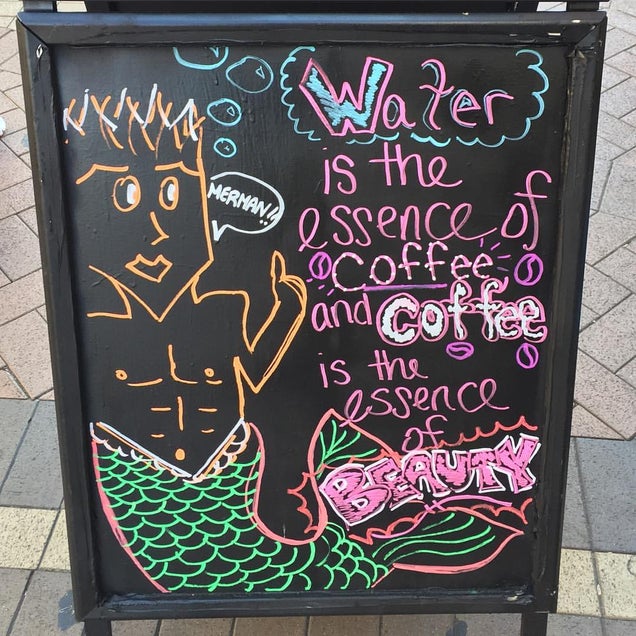 Water
is the
essence of
coffee
and coffee
is the
essence
of
BEAUTY
MERMAN!!